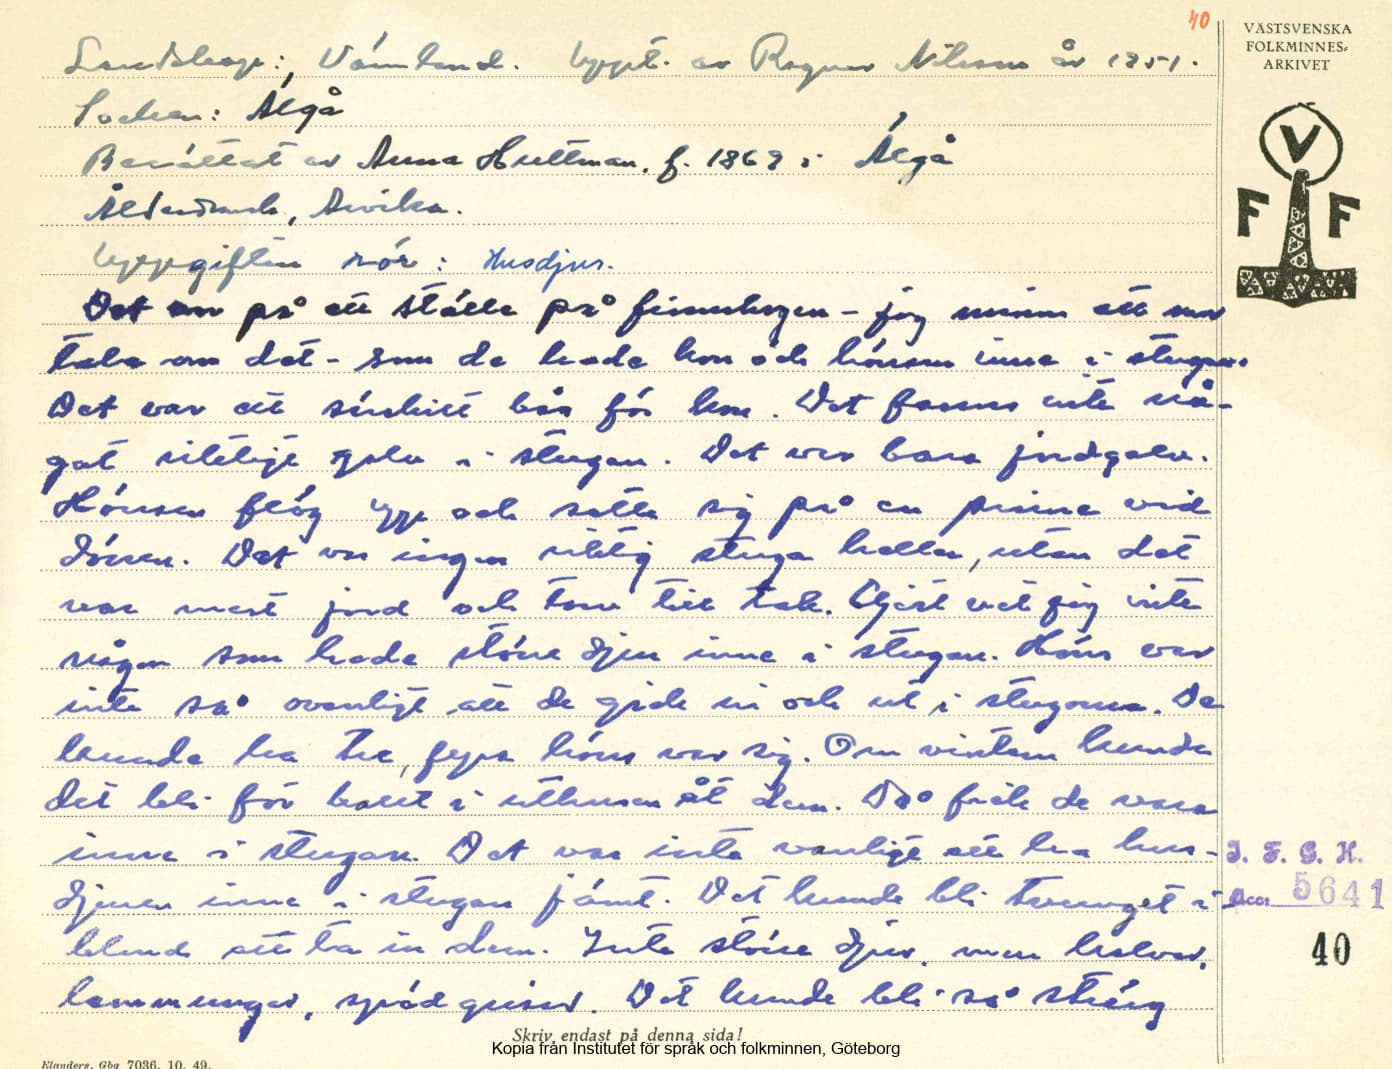 40
VÄSTSVENSKA
FOLKMINNES=
ARKIVET
V
F F
Landskap: Värmland. Uppt. av Ragnar Nilsson år 1951.
Socken: Älgå
Berättat av Anna Hultman, f. 1868 i Älgå
Ålderdomsh, Arvika.
Uppgiften rör: Husdjur.
Det var på ett ställe på finnskogen - jag minns att mor
tala om det - som de hade kon och hönsen inne i stugan.
Det var ett särskilt bås för kon. Det fanns inte nå-
got riktigt golv i stugan. Det var bara jordgolv.
Hönsen flög upp och satte sig på en pinne vid
dörren. Det var ingen riktig stuga heller, utan det
var mest jord och torv till tak. Eljest vet jag inte
någon som hade större djur inne i stugan. Höns var
inte så ovanligt att de gick in och ut i stugorna. De
kunde ha tre, fyra höns var sig. Om vintern kunde
det bli för kallt i uthusen åt dem. Då fick de vara
inne i stugan. Det var inte vanligt att ha hus-
djuren inne i stugan jämt. Det kunde bli tvunget i-
bland att ta in dem. Inte större djur, men kalvar,
lammungar, spädgrisar. Det kunde bli så sträng
I. F. G. H.
Acc: 5641
40
Skriv endast på denna sida!
Kopia från Institutet för språk och folkminnen, Göteborg
Elanders, Gbg 7036. 10. 49.